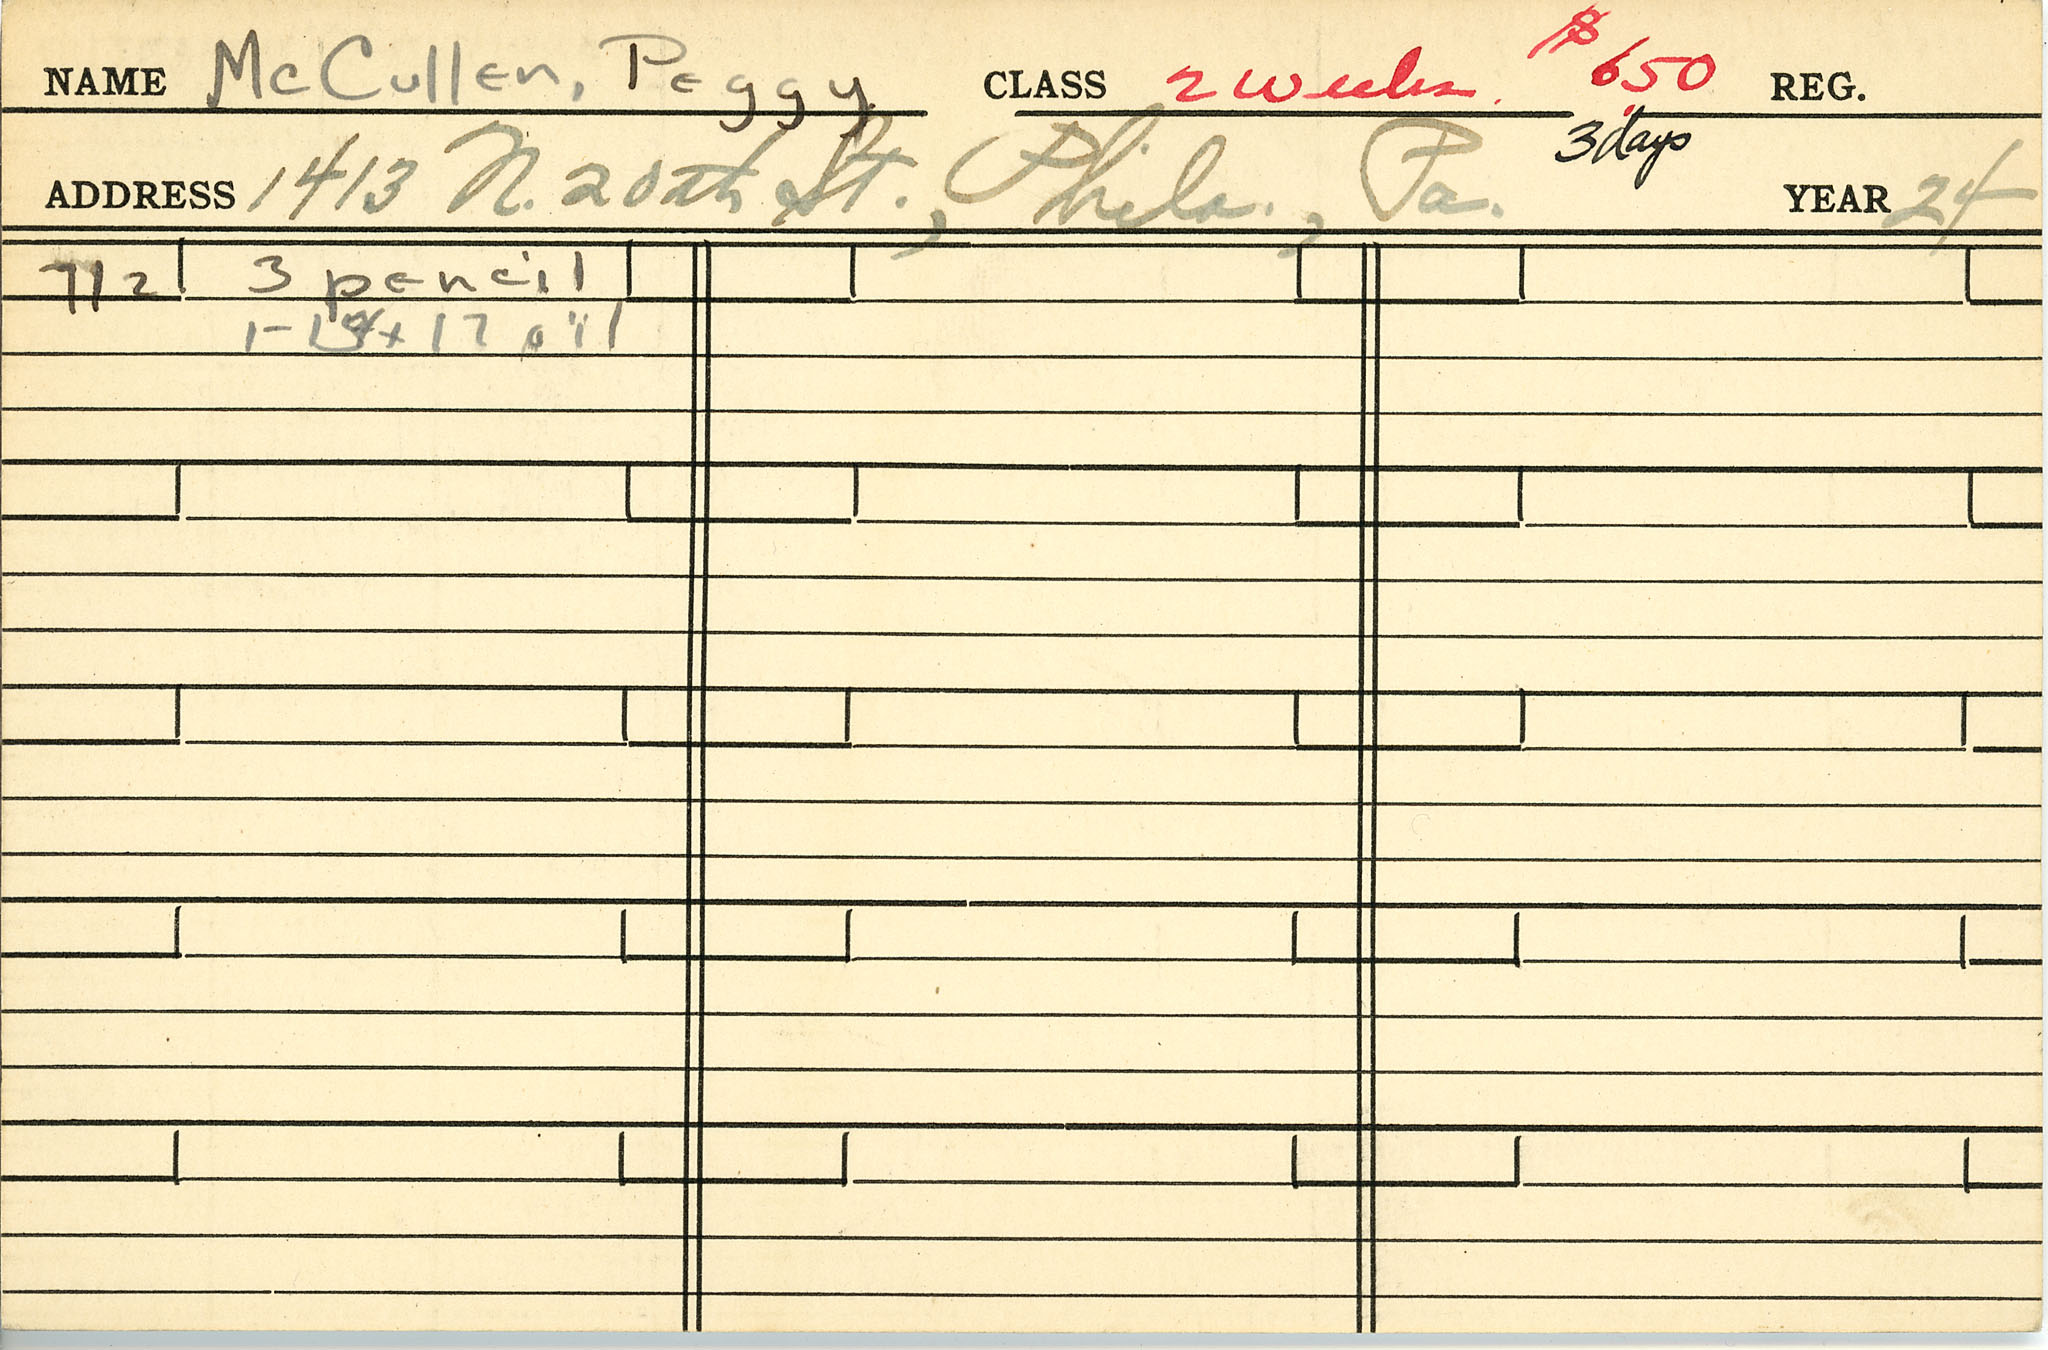 NAME McCullen, Peggy CLASS 2 weeks. $650 REG.
3 days
ADDRESS 1413 N. 20th St., Phila., Pa. YEAR 24
712 3 pencil
1- x 17 oil